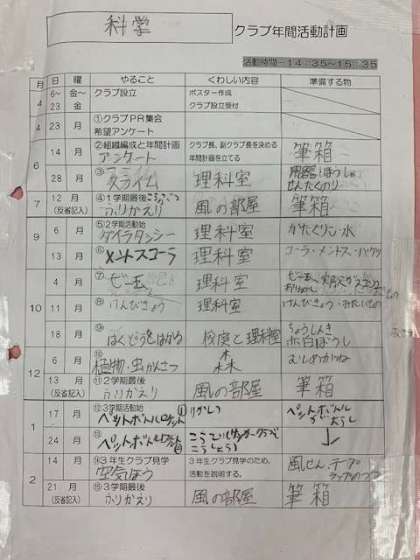 科学 クラブ年間活動計画
活動時間－14：35～15：35
月 日 曜 やること くわしい内容 準備する物
4 6～ 金～ クラブ設立 ポスター作成
23 金 クラブ設立受付
4 23 月 ①クラブPR集会
希望アンケート
6 14 月 ②組織編成と年間計画 クラブ長、副クラブ長を決める
アンケート 年間計画を立てる 筆箱
28 月 ③スライム 理科室 せんたくのり
7 12 月 ④1学期最後
(反省記入) ふりかえり 風の部屋 筆箱
9 6 月 ⑤2学期始動
ダイラタンシー 理科室 かたくりこ 水
13 月 ⑥メントスコーラ 理科室 コーラ・メントス・バケツ
10 4 月 ⑦ 理科室
11 月 ⑧けんびきょう 理科室 けんびきょう・みたいもの
18 月 ⑨はくどうをはかる 校庭と理科室 ちょうしんき
赤白ぼうし
12 6 月 ⑩植物・虫かんさつ 森 むしめがね
13 月 ⑪2学期最後
(反省記入) ふりかえり 風の部屋 筆箱
1 17 月 ⑫3学期活動始
ペットボトルロケット① りかしつ ペットボトル
24 月 ⑬ペットボトルロケット②
2 14 月 ⑭3年生クラブ見学 3年生クラブ見学のため、
空気ほう 活動を説明する。 風せん、テープ
21 月 ⑮3学期最後
(反省記入) ふりかえり 風の部屋 筆箱